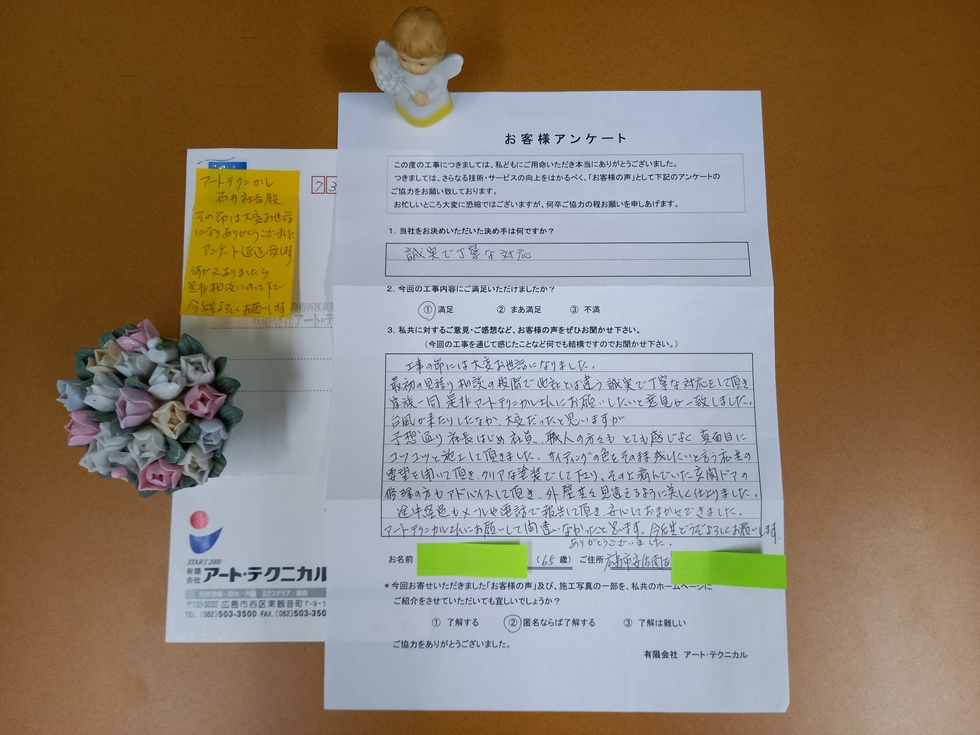 お客様アンケート
この度の工事につきましては、私どもにご用命いただき本当にありがとうございました。
つきましては、さらなる技術・サービスの向上をはかるべく、「お客様の声」として下記のアンケートの
ご協力をお願い致しております。
お忙しいところ大変に恐縮ではございますが、何卒ご協力の程お願いを申しあげます。
1. 当社をお決めいただいた決め手は何ですか?
誠実で丁寧な対応
2. 今回の工事内容にご満足いただけましたか?
① 満足 ② まあ満足 ③ 不満
3. 私共に対するご意見・ご感想など、お客様の声をぜひお聞かせ下さい。
(今回の工事を通じて感じたことなど何でも結構ですのでお聞かせ下さい。)
工事の節には大変お世話になりました。
最初の見積り相談の段階で他社とは違う誠実で丁寧な対応をして頂き
家族一同是非アートテクニカルさんにお願いしたいと意見が一致しました。
台風が来たりしたなか、大変だったと思いますが
予想通り社長はじめ社員、職人の方々もとても感じよく真面目に
コツコツと施工して頂きました。サイディングの色をその侭残したいと言う私共の
要望を聞いて頂き、クリアな塗装でして下さり、その上病んでいた玄関ドアの
修理の方もアドバイスして頂き、外壁共々見違えるように美しく仕上りました。
途中経過もメールや電話で報告して頂き、安心しておまかせできました。
アートテクニカルさんにお願いして間違いなかったと思います。今後共どうぞよろしくお願いします
ありがとうございました。
お名前 (65歳) ご住所 広島市安佐南区
*今回お寄せいただきました「お客様の声」及び、施工写真の一部を、私共のホームページに
ご紹介をさせていただいても宜しいでしょうか?
① 了解する ② 匿名ならば了解する ③ 了解は難しい
ご協力をありがとうございました。
有限会社 アート・テクニカル
アートテクニカル
石井社長殿
その節は大変お世話
になりありがとうございました
アンケート返送致します
何か又ありましたら
是非相談にのって下さい
今後共よろしくお願いします
73
START 2000
有限会社 アート・テクニカル
〒733-0032 広島市西区東観音町7-9-1
TEL (082)503-3500 FAX. (082)503-350